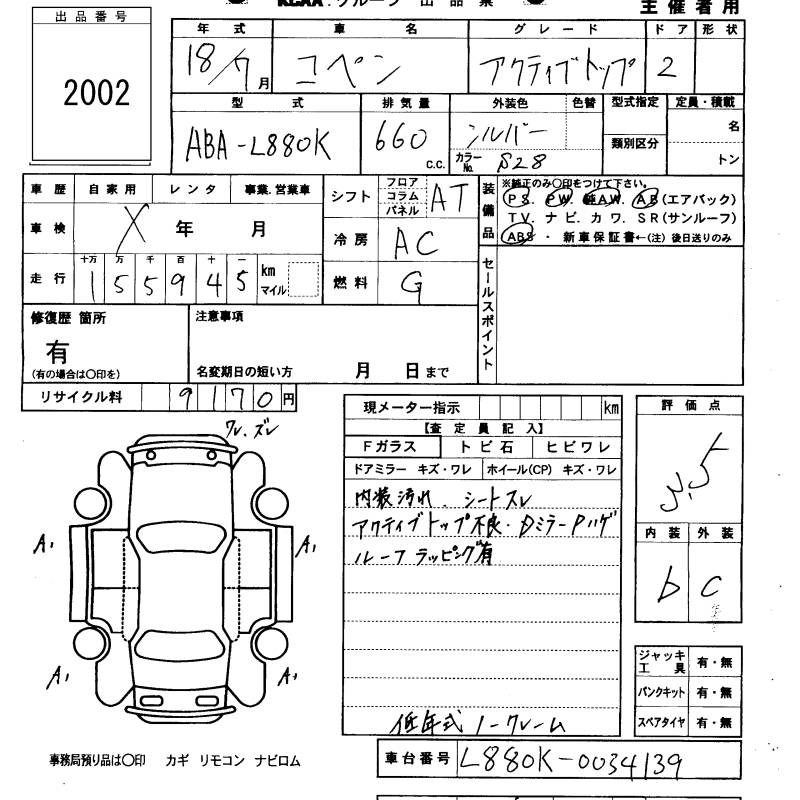 KCAA.グループ 出 品 票
主催者用
出品番号
2002
年 式
車 名
グ レ ー ド
ド ア
形 状
18/7月
コペン
アクティブトップ
2
型 式
排気量
外装色
色替
型式指定
定員・積載
ABA-L880K
660
C.C.
シルバー
カラーNo. S28
類別区分
名
トン
車 歴
自 家 用
レ ン タ
事業.営業車
シフト
フロア
コラム
パネル
AT
装備品
※純正のみ〇印をつけて下さい。
PS. PW. 純AW. AB(エアバック)
TV. ナビ. カワ. SR(サンルーフ)
ABS ・ 新車保証書←(注) 後日送りのみ
車 検
X 年 月
冷 房
AC
走 行
十万 万 千 百 十 一
155945
km
マイル
燃 料
G
セールスポイント
修復歴 箇所
有
(有の場合は〇印を)
注意事項
名変期日の短い方 月 日まで
リサイクル料
9170円
ワレ.ズレ
A1
A1
A1
A1
現メーター指示
km
【査 定 員 記 入】
Fガラス
ト ビ 石
ヒ ビ ワ レ
ドアミラー キズ・ワレ
ホイール(CP) キズ・ワレ
内装汚れ. シートスレ
アクティブトップ不良・DミラーPハゲ
ルーフラッピング有
低年式ノークレーム
評 価 点
3.5
内 装
外 装
b
C
ジャッキ
工 具
有・無
パンクキット
有・無
スペアタイヤ
有・無
事務局預り品は〇印 カギ リモコン ナビロム
車台番号
L880K-0034139